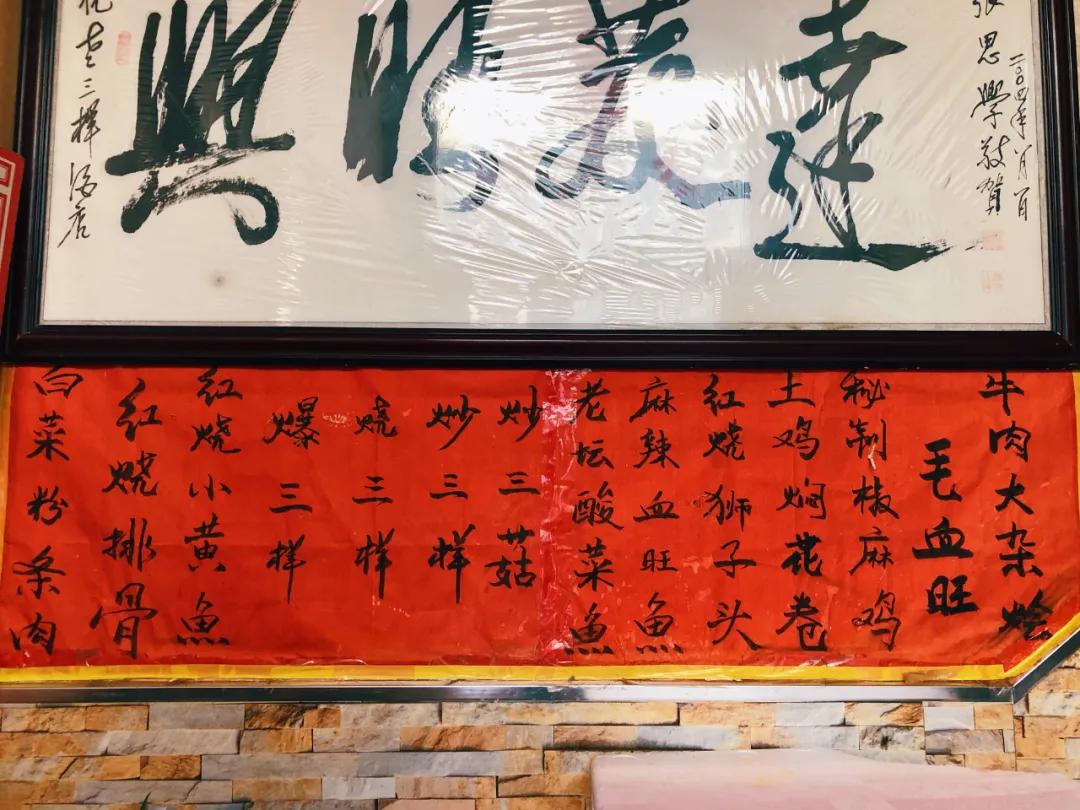 祝老三样酒店
興隆發達
二〇〇四年八月
张思學敬贺
牛肉大杂烩
毛血旺
秘制椒麻鸡
土鸡焖花卷
红烧狮子头
麻辣血旺魚
老坛酸菜魚
炒三菇
炒三样
烧三样
爆三样
红烧小黄魚
红烧排骨
白菜粉条肉